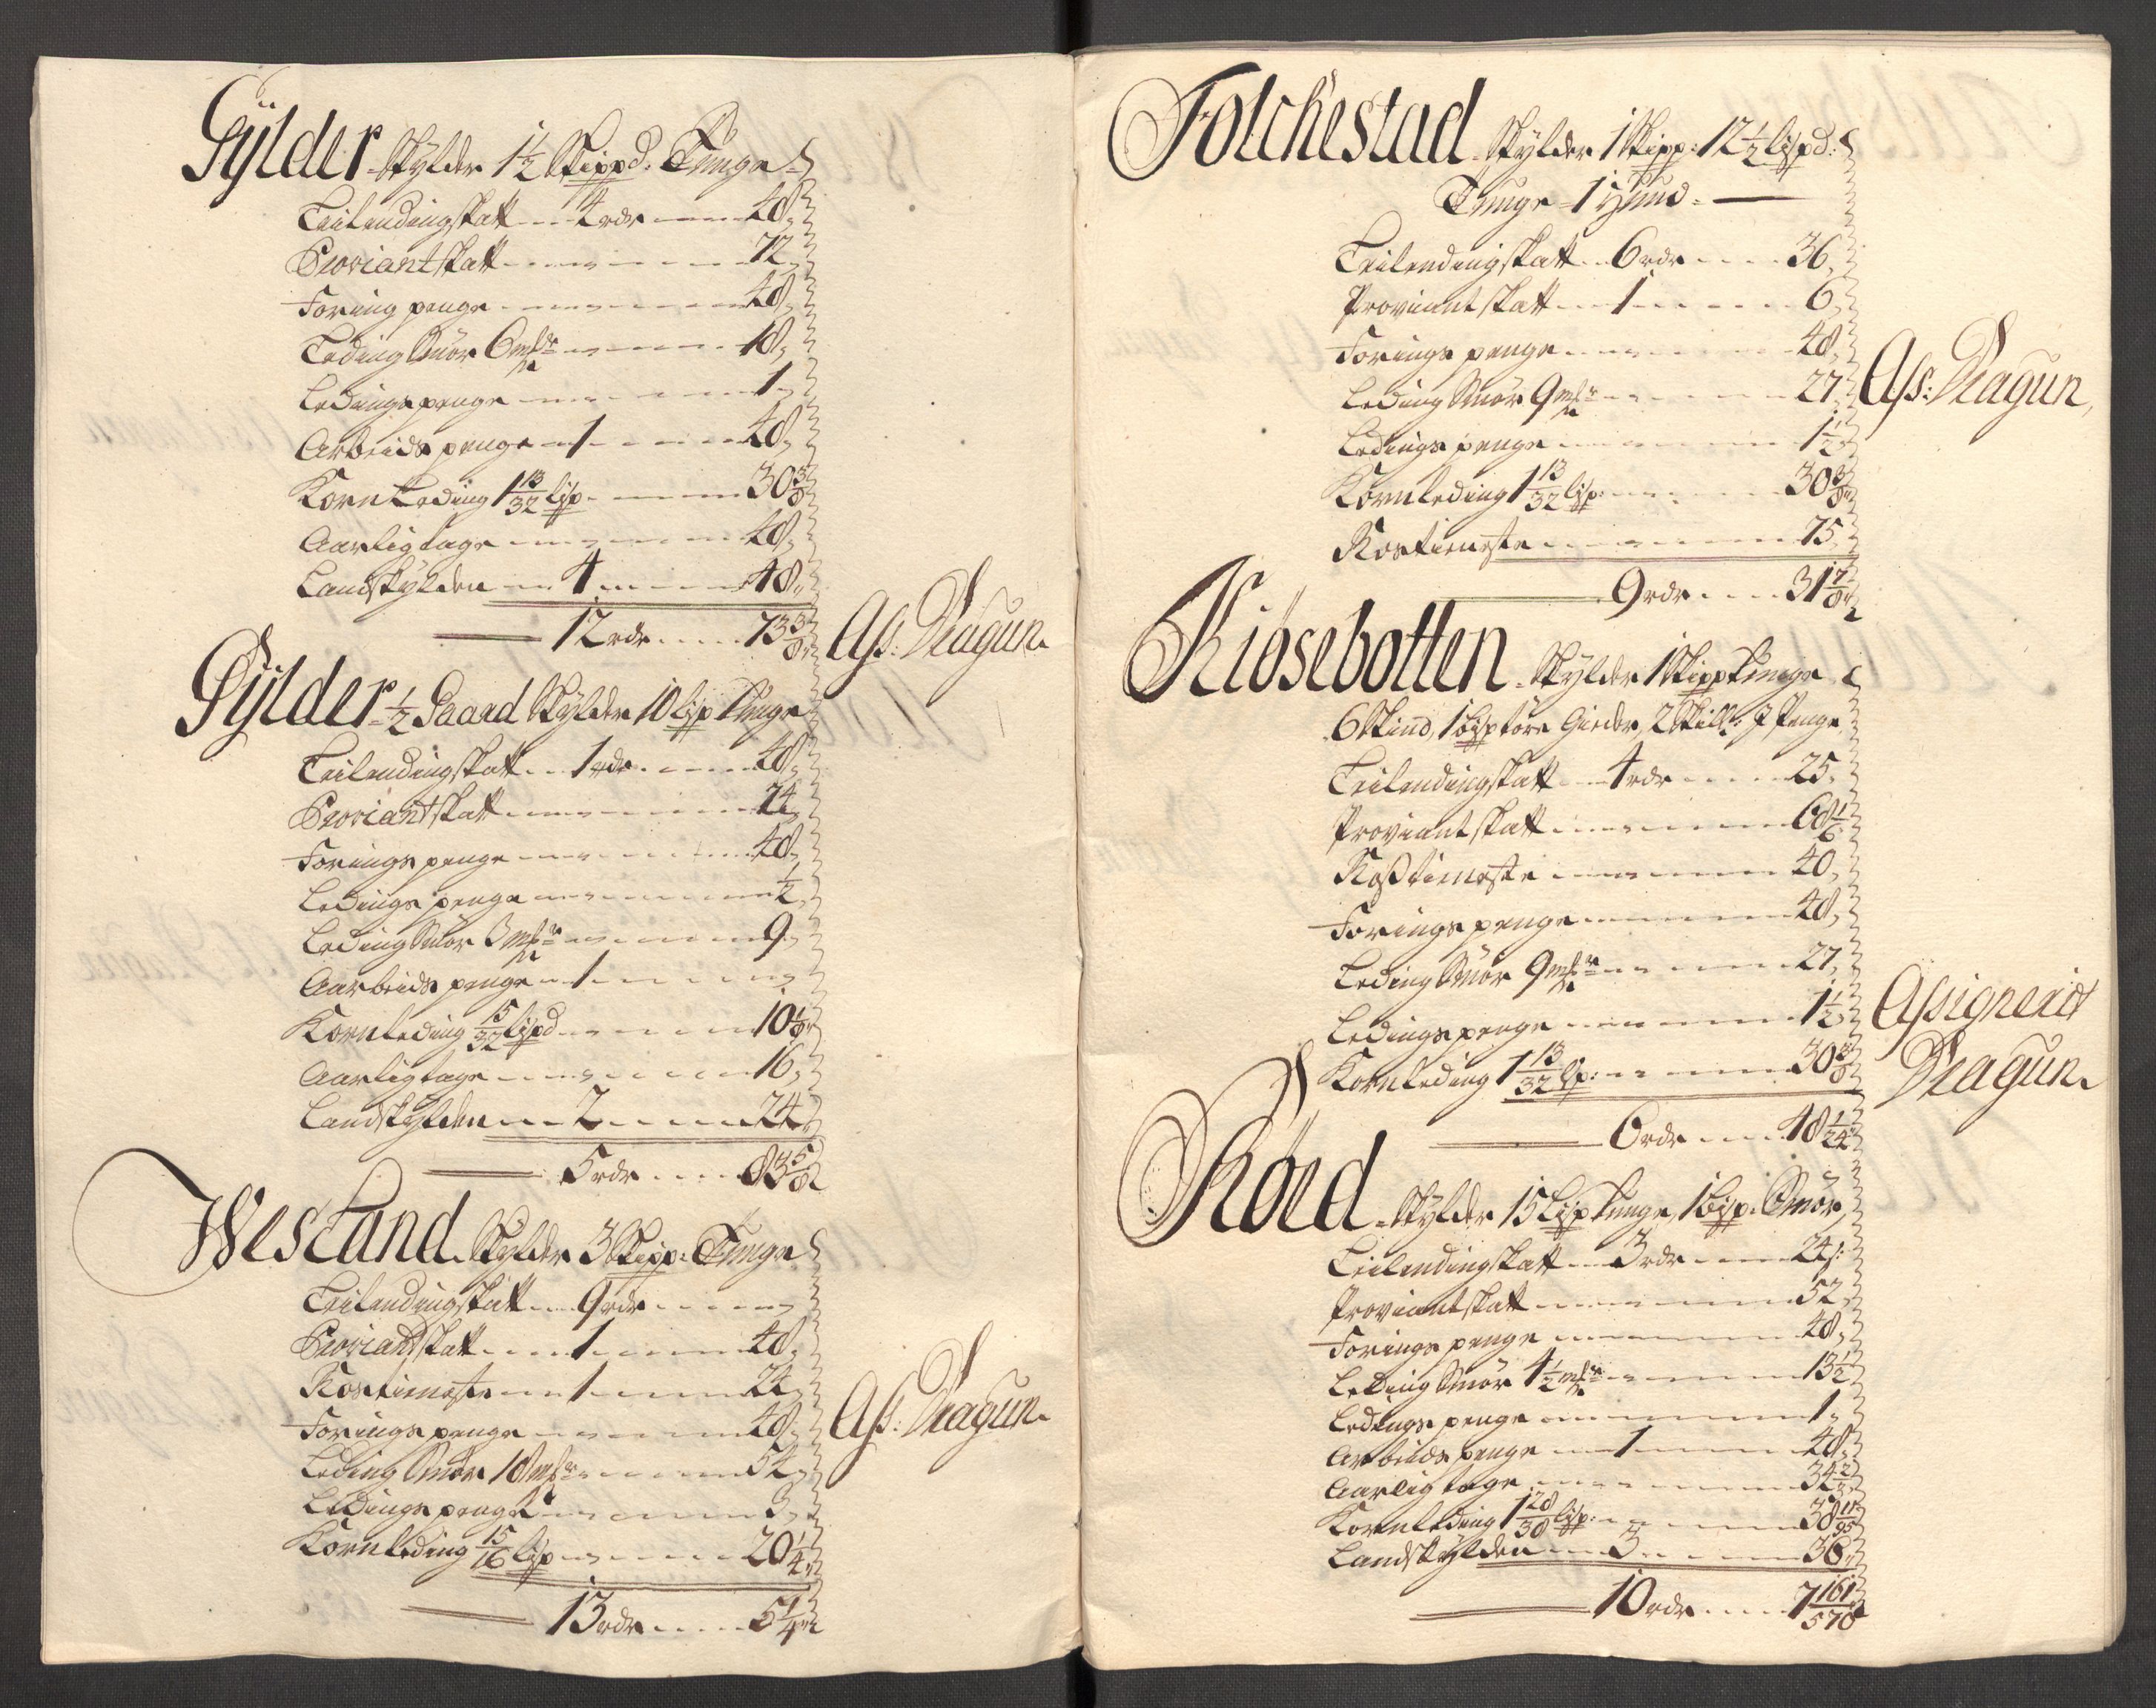 Gylder Skylder 1 1/2 Skippd: Tunge
Leilendingskatt 4 rdr 48
Proviantskatt 72
Foring penge 48
Leding Smør 6 18
Ledings penge 1
Arbeids penge 1 48
Korn Leding 1 13/32 lisp 30 3/8
Aarligtage 48
Landskylden 4 48
12 rdr 73 3/8
Ass: Dragun
Gylder 1/2 Gaard Skylder 10 lisp Tunge
Leilendingskatt 1 rdr 48
Proviantskatt 24
Forings penge 48
Ledings penge 1/2
Leding Smør 3 9
Aarbeids penge 1
Kornleding 15/32 lispd 10 1/8
Aarligtage 16
Landskylden 2 24
5 rdr 83 5/8
Westand Skylder 3 Skipp: Tunge
Leilendingskatt 9 rdr
Proviantskatt 1 48
Rostieneste 1 24
Forings penge 48
Leding Smør 18 54
Ledings penge 3
Kornleding 15/16 lisp 20 1/4
13 rdr 5 1/4
Ass: Dragun
Folchestad Skylder 1 Skipp: 12 1/2 lispd:
Tunge 1 Hund
Leilendingskatt 6 rdr 36
Proviantskatt 1 6
Forings penge 48
Leding Smør 9 27
Ledings penge 1 1/2
Kornleding 1 13/32 lisp: 30 3/8
Rostieneste 75
9 rdr 31 7/8
Ass: Dragun
Kiøsebotten Skylder 1 Skipp Tunge
6 Skind, 1 Bisp tøre Gieder, 2 Skill: I Penge
Leilendingskatt 4 rdr 25
Proviantskatt 68 1/6
Rostieneste 40
Forings penge 48
Leding Smør 9 27
Ledings penge 1 1/2
Kornleding 1 13/32 lp: 30 3/8
6 rdr 48 1/24
Assignerit
Dragun
Røed Skylder 15 Lisp Tunge, 1 Bisp: Smør,
Leilendingskatt 3 rdr 24
Proviantskatt 52
Forings penge 48
Leding Smør 4 1/2 13 1/2
Ledings penge 1
Arbeids penge 1 48
Aarligtage 34 2/3
Kornleding 1 28/38 lisp: 38 11/95
Landskylden 3 36
10 rdr 7 161/570